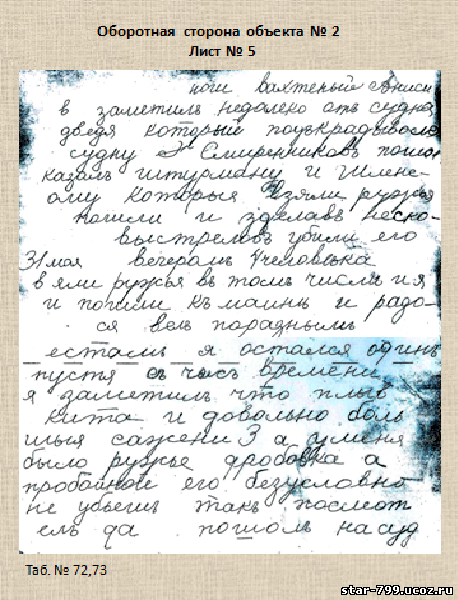 Оборотная сторона объекта № 2
Лист № 5
ночи вахтеный Аниси
в заметилъ недалеко отъ судна
дведя который подъкрадывося
судну Смиренниковъ пошол
казалъ штурману и
ому которыя взяли ружья
пошли и зделавъ неско
выстреловъ убили его
31 мая вечеромъ 4 человѣка
взяли ружья въ томъ числи и я
и пошли къ маинѣ и
ся всѣ
естамъ я остался одинъ
пустя съ часъ времени
я заметилъ что плыв
кита и довольно боль
шыя сажени 3 а у меня
было ружье дробовка а
пробойной его безусловно
не убьешъ такъ посмот
елъ да пошолъ на суд
Таб. № 72,73
star-799.ucoz.ru